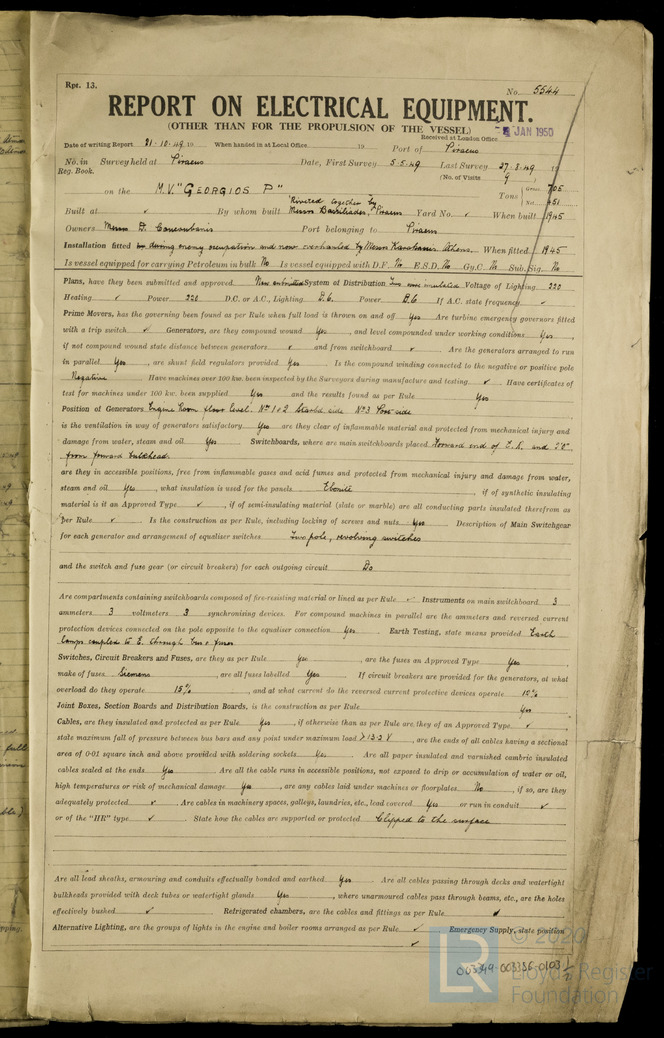 Rpt. 13.
No. 5544
REPORT ON ELECTRICAL EQUIPMENT.
(OTHER THAN FOR THE PROPULSION OF THE VESSEL)
Received at London Office JAN 1950
Date of writing Report 21-10-49 19 When handed in at Local Office 19 Port of Piraeus
No. in Reg. Book. Survey held at Piraeus Date, First Survey 5-5-49 Last Survey 27-8-49 19
(No. of Visits 9 )
on the M.V. "GEORGIOS P" Tons Gross 705 Net 451
Riveted together by
Built at ✓ By whom built Messrs Bassiliades, Piraeus Yard No. ✓ When built 1945
Owners Messrs D. Port belonging to Piraeus
Installation fitted by during enemy occupation and now overhauled by Messrs Athens. When fitted 1945
Is vessel equipped for carrying Petroleum in bulk No Is vessel equipped with D.F. No E.S.D. No Gy.C. No Sub.Sig. No
Plans, have they been submitted and approved. Now submitted System of Distribution Two wire insulated Voltage of Lighting 220
Heating ✓ Power 220 D.C. or A.C., Lighting D.C. Power D.C. If A.C. state frequency ✓
Prime Movers, has the governing been found as per Rule when full load is thrown on and off Yes Are turbine emergency governors fitted
with a trip switch ✓ Generators, are they compound wound Yes, and level compounded under working conditions Yes,
if not compound wound state distance between generators ✓ and from switchboard ✓ Are the generators arranged to run
in parallel Yes, are shunt field regulators provided Yes Is the compound winding connected to the negative or positive pole
Negative Have machines over 100 kw. been inspected by the Surveyors during manufacture and testing ✓ Have certificates of
test for machines under 100 kw. been supplied Yes and the results found as per Rule Yes
Position of Generators Engine Room floor level. Nos 1 & 2 Starbd side No 3 Port side
is the ventilation in way of generators satisfactory Yes are they clear of inflammable material and protected from mechanical injury and
damage from water, steam and oil Yes Switchboards, where are main switchboards placed Forward end of E.R. and
from forward bulkhead
are they in accessible positions, free from inflammable gases and acid fumes and protected from mechanical injury and damage from water,
steam and oil Yes, what insulation is used for the panels Ebonite, if of synthetic insulating
material is it an Approved Type ✓, if of semi-insulating material (slate or marble) are all conducting parts insulated therefrom as
per Rule ✓ Is the construction as per Rule, including locking of screws and nuts Yes Description of Main Switchgear
for each generator and arrangement of equaliser switches Two pole, revolving switches
and the switch and fuse gear (or circuit breakers) for each outgoing circuit Do
Are compartments containing switchboards composed of fire-resisting material or lined as per Rule ✓ Instruments on main switchboard 3
ammeters 3 voltmeters 3 synchronising devices. For compound machines in parallel are the ammeters and reversed current
protection devices connected on the pole opposite to the equaliser connection Yes Earth Testing, state means provided Earth
lamps coupled to E. through fuses
Switches, Circuit Breakers and Fuses, are they as per Rule Yes, are the fuses an Approved Type Yes,
make of fuses Siemens, are all fuses labelled Yes If circuit breakers are provided for the generators, at what
overload do they operate 15%, and at what current do the reversed current protective devices operate 10%
Joint Boxes, Section Boards and Distribution Boards, is the construction as per Rule Yes
Cables, are they insulated and protected as per Rule Yes, if otherwise than as per Rule are they of an Approved Type ✓,
state maximum fall of pressure between bus bars and any point under maximum load >13.2 V, are the ends of all cables having a sectional
area of 0·01 square inch and above provided with soldering sockets Yes. Are all paper insulated and varnished cambric insulated
cables sealed at the ends Yes Are all the cable runs in accessible positions, not exposed to drip or accumulation of water or oil,
high temperatures or risk of mechanical damage Yes, are any cables laid under machines or floorplates No, if so, are they
adequately protected ✓ Are cables in machinery spaces, galleys, laundries, etc., lead covered Yes or run in conduit ✓
or of the "HR" type ✓ State how the cables are supported or protected Clipped to the surface
Are all lead sheaths, armouring and conduits effectually bonded and earthed Yes Are all cables passing through decks and watertight
bulkheads provided with deck tubes or watertight glands Yes, where unarmoured cables pass through beams, etc., are the holes
effectively bushed ✓ Refrigerated chambers, are the cables and fittings as per Rule ✓
Alternative Lighting, are the groups of lights in the engine and boiler rooms arranged as per Rule ✓ Emergency Supply, state position
✓
003349-003356-0103 1/2
LR © 2020
Lloyd's Register
Foundation